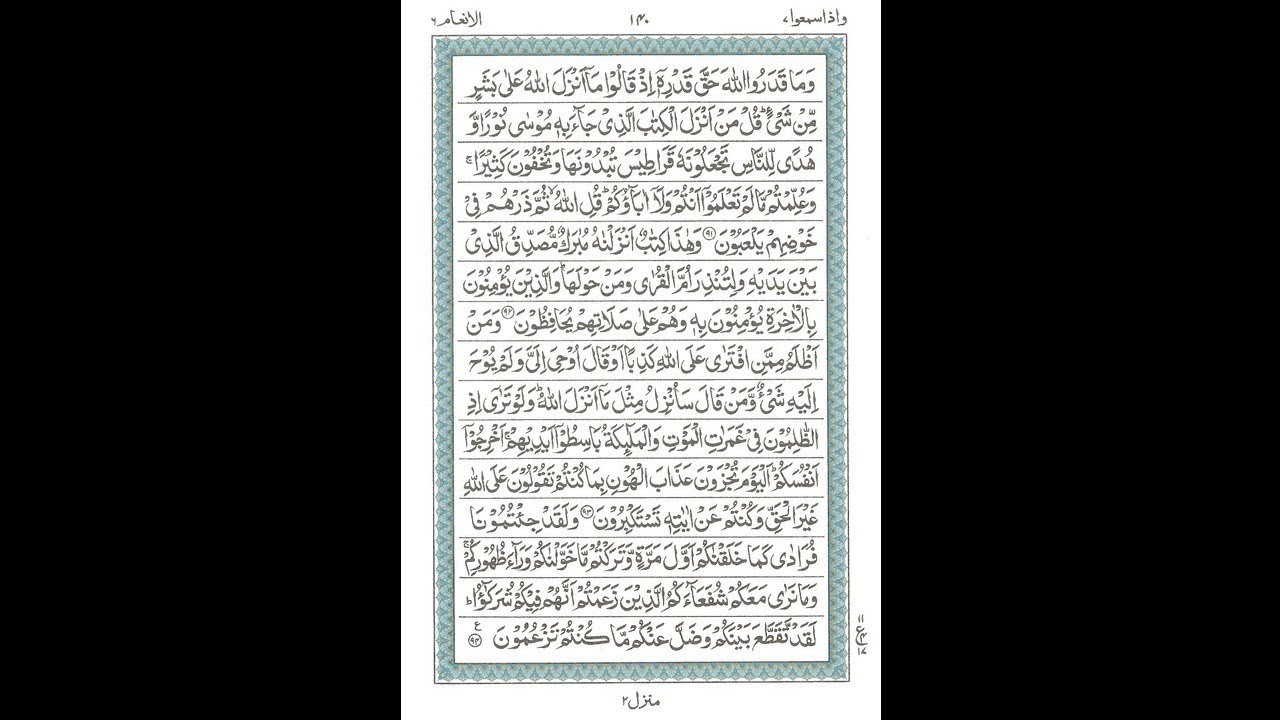 واذاسمعوا۷ ۱۴۰ الانعام۶
وَمَا قَدَرُوا اللّٰهَ حَقَّ قَدْرِهٖۤ اِذْ قَالُوْا مَاۤ اَنْزَلَ اللّٰهُ عَلٰى بَشَرٍ
مِّنْ شَیْءٍؕ قُلْ مَنْ اَنْزَلَ الْكِتٰبَ الَّذِیْ جَآءَ بِهٖ مُوْسٰى نُوْرًا وَّ
هُدًى لِّلنَّاسِ تَجْعَلُوْنَهٗ قَرَاطِیْسَ تُبْدُوْنَهَا وَتُخْفُوْنَ كَثِیْرًاۚ
وَعُلِّمْتُمْ مَّا لَمْ تَعْلَمُوْۤا اَنْتُمْ وَلَاۤ اٰبَآؤُكُمْؕ قُلِ اللّٰهُۙ ثُمَّ ذَرْهُمْ فِیْ
خَوْضِهِمْ یَلْعَبُوْنَ ۹۱ وَهٰذَا كِتٰبٌ اَنْزَلْنٰهُ مُبٰرَكٌ مُّصَدِّقُ الَّذِیْ
بَیْنَ یَدَیْهِ وَلِتُنْذِرَ اُمَّ الْقُرٰى وَمَنْ حَوْلَهَاؕ وَالَّذِیْنَ یُؤْمِنُوْنَ
بِالْاٰخِرَةِ یُؤْمِنُوْنَ بِهٖ وَهُمْ عَلٰى صَلَاتِهِمْ یُحَافِظُوْنَ ۹۲ وَمَنْ
اَظْلَمُ مِمَّنِ افْتَرٰى عَلَى اللّٰهِ كَذِبًا اَوْ قَالَ اُوْحِیَ اِلَیَّ وَلَمْ یُوْحَ
اِلَیْهِ شَیْءٌ وَّمَنْ قَالَ سَاُنْزِلُ مِثْلَ مَاۤ اَنْزَلَ اللّٰهُؕ وَلَوْ تَرٰۤى اِذِ
الظّٰلِمُوْنَ فِیْ غَمَرٰتِ الْمَوْتِ وَالْمَلٰٓىِٕكَةُ بَاسِطُوْۤا اَیْدِیْهِمْۚ اَخْرِجُوْۤا
اَنْفُسَكُمْؕ اَلْیَوْمَ تُجْزَوْنَ عَذَابَ الْهُوْنِ بِمَا كُنْتُمْ تَقُوْلُوْنَ عَلَى اللّٰهِ
غَیْرَ الْحَقِّ وَكُنْتُمْ عَنْ اٰیٰتِهٖ تَسْتَكْبِرُوْنَ ۹۳ وَلَقَدْ جِئْتُمُوْنَا
فُرَادٰى كَمَا خَلَقْنٰكُمْ اَوَّلَ مَرَّةٍ وَّتَرَكْتُمْ مَّا خَوَّلْنٰكُمْ وَرَآءَ ظُهُوْرِكُمْۚ
وَمَا نَرٰى مَعَكُمْ شُفَعَآءَكُمُ الَّذِیْنَ زَعَمْتُمْ اَنَّهُمْ فِیْكُمْ شُرَكٰٓؤُاؕ
لَقَدْ تَّقَطَّعَ بَیْنَكُمْ وَضَلَّ عَنْكُمْ مَّا كُنْتُمْ تَزْعُمُوْنَ ع ۹۴
۱۱
ع۴
۱۷
منزل۲